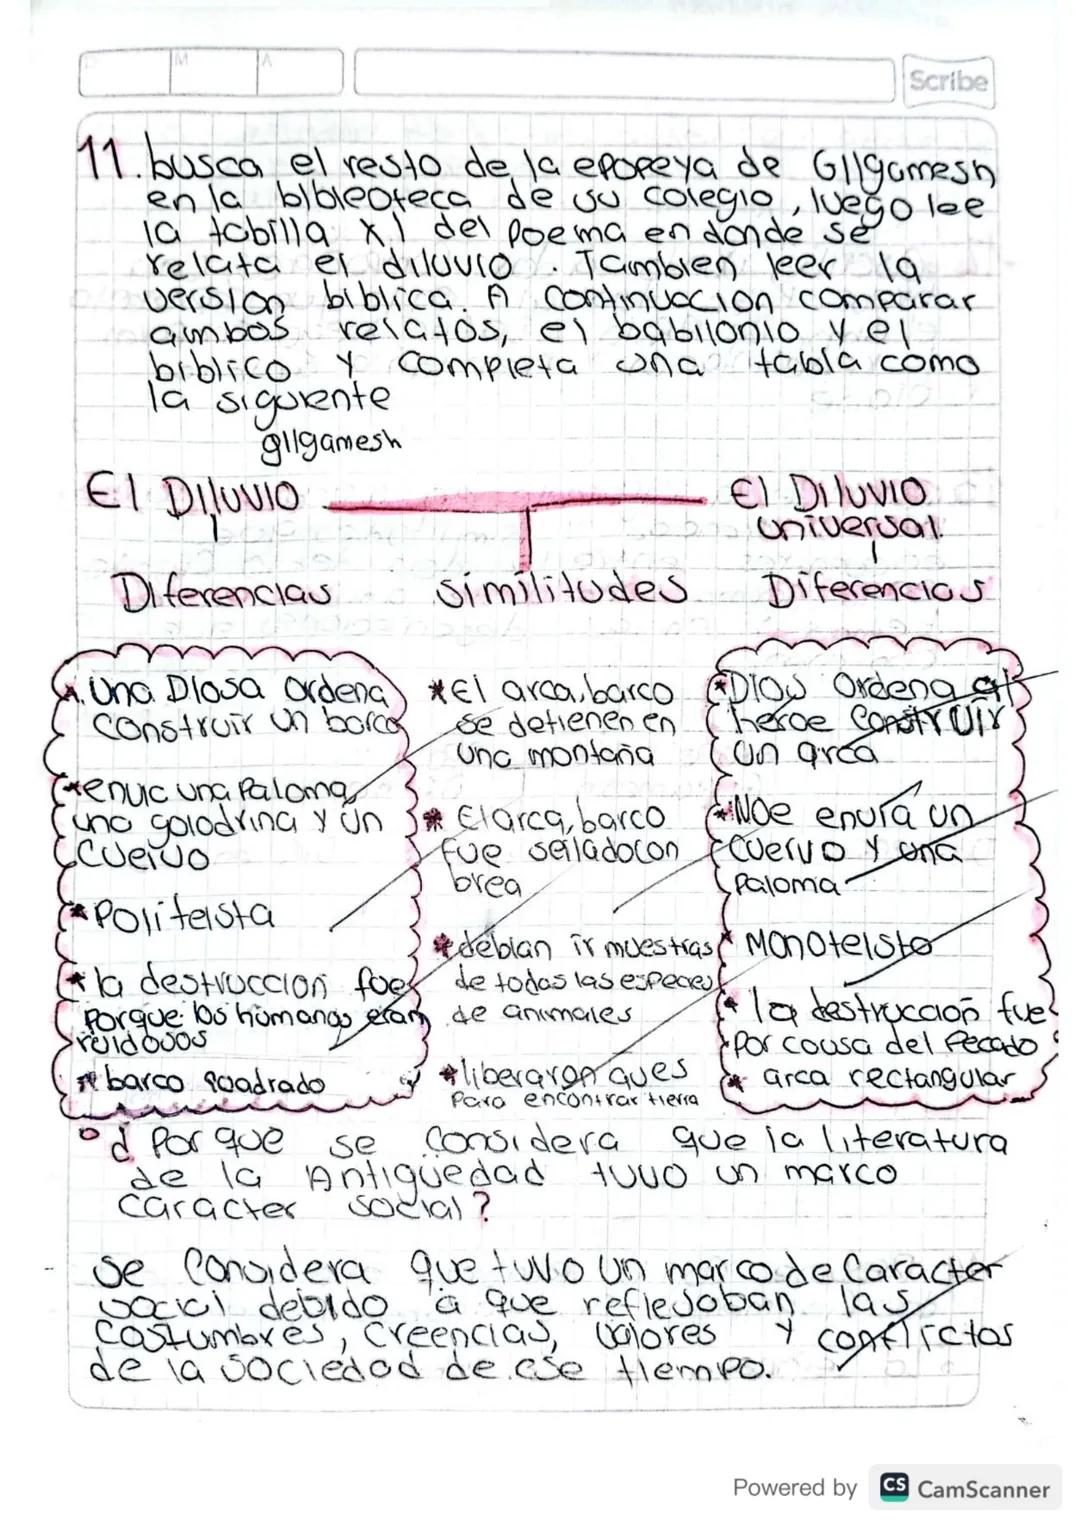 D
M
A
Scribe
11. busca el resto de la epopeya de Gilgamesh
en la bibleoteca de su colegio, luego lee
la tabilla XI del poema en donde se
relata el diluvio. Tambien leer la
version biblica. A continuacion comparar
ambos relatos, el babilonio y el
biblico y completa una tabla como
la siguiente
gilgamesh
El Diluvio
El Diluvio
universal.
Diferencias
similitudes
Diferencias
* Una Diosa ordena
construir un barco
* envic una Paloma,
una golodrina y un
cuervo
* Politeista
* la destruccion fue
Porque los humanos eran
ruidosos
* barco quadrado
* El arca, barco
se detienen en
una montaña
* El arca, barco
fue selladocon
brea
* debian ir muestras
de todas las especies
de animales
* liberaron aves
Para encontrar tierra
* Dios ordena al
heroe construir
un arca
* Noe envia un
cuervo y una
Paloma
* Monoteisto
* la destruccion fue
por causa del Pecado
* arca rectangular
¿ Por que se considera que la literatura
de la Antigüedad tuvo un marco
caracter social?
- se considera que tuvo un marco de caracter
social debido a que reflejaban las
costumbres, creencias, valores y conflictos
de la sociedad de ese tiempo.
Powered by CS CamScanner